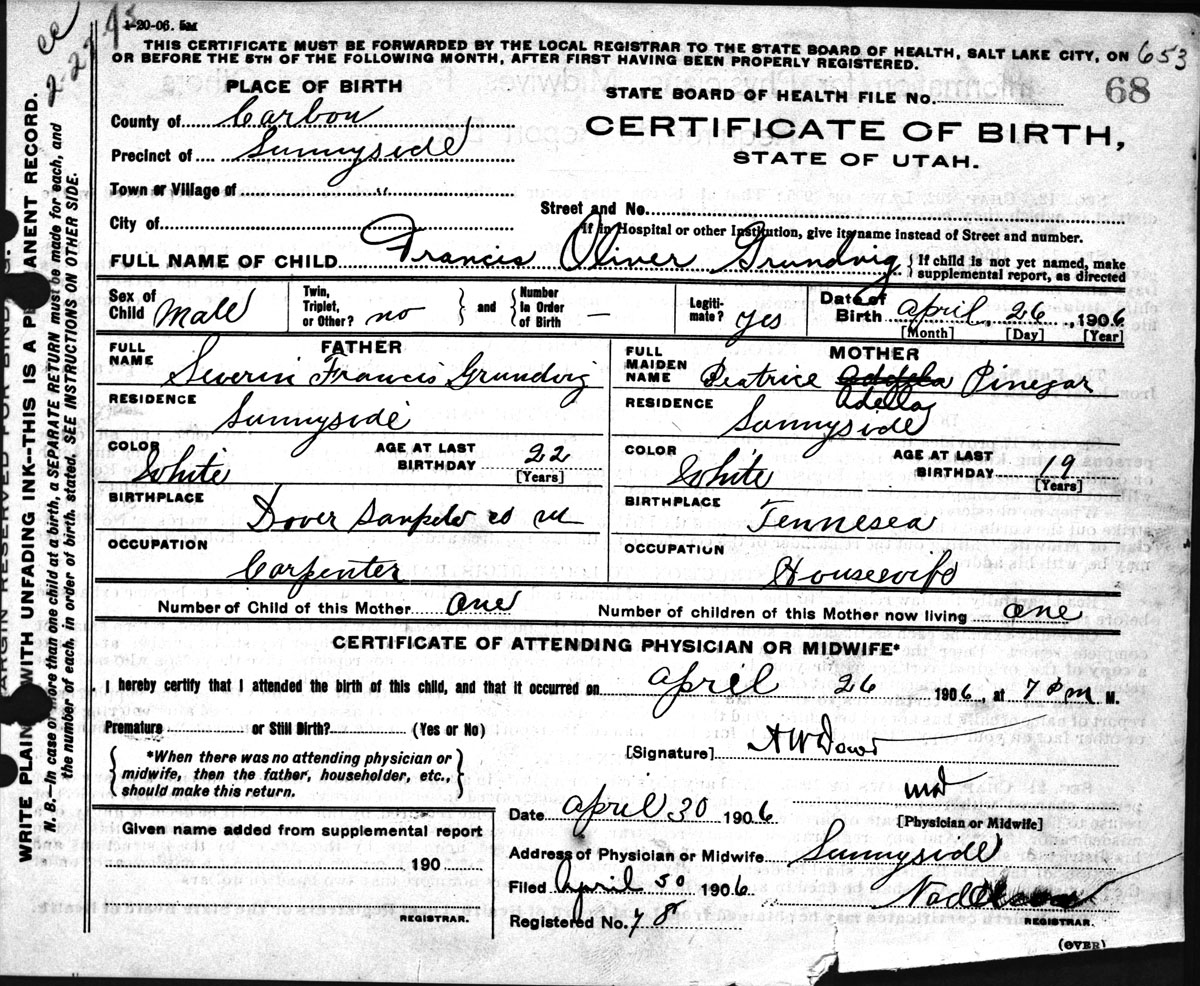 1-20-06. 5M
ee
2-27
THIS CERTIFICATE MUST BE FORWARDED BY THE LOCAL REGISTRAR TO THE STATE BOARD OF HEALTH, SALT LAKE CITY, ON
OR BEFORE THE 5TH OF THE FOLLOWING MONTH, AFTER FIRST HAVING BEEN PROPERLY REGISTERED.
653
68
PLACE OF BIRTH
STATE BOARD OF HEALTH FILE No.
County of Carbon
CERTIFICATE OF BIRTH,
STATE OF UTAH.
Precinct of Sunnyside
Town or Village of "
Street and No.
City of
If in Hospital or other Institution, give its name instead of Street and number.
FULL NAME OF CHILD Francis Oliver Grundvig { If child is not yet named, make
supplemental report, as directed
Sex of Child Male
Twin, Triplet, or Other? no } and { Number in Order of Birth —
Legitimate? yes
Date of Birth april, 26, 1906
[Month] [Day] [Year]
FATHER
FULL NAME Severin Francis Grundvig
RESIDENCE Sunnyside
COLOR White
AGE AT LAST BIRTHDAY 22
[Years]
BIRTHPLACE Dover Sanpete co ut
OCCUPATION Carpenter
MOTHER
FULL MAIDEN NAME Beatrice Pinegar
Adella
RESIDENCE Sunnyside
COLOR White
AGE AT LAST BIRTHDAY 19
[Years]
BIRTHPLACE Tennesea
OCCUPATION Housewife
Number of Child of this Mother one Number of children of this Mother now living one
CERTIFICATE OF ATTENDING PHYSICIAN OR MIDWIFE*
I hereby certify that I attended the birth of this child, and that it occurred on april 26 1906, at 7 pm M.
Premature or Still Birth? (Yes or No)
{ *When there was no attending physician or
midwife, then the father, householder, etc.,
should make this return. }
[Signature] A W Dowd
md
[Physician or Midwife]
Date april 30 1906
Given name added from supplemental report
190
REGISTRAR.
Address of Physician or Midwife Sunnyside
Filed April 30 1906
REGISTRAR.
Registered No. 78
(OVER)
MARGIN RESERVED FOR BINDING.
WRITE PLAINLY WITH UNFADING INK--THIS IS A PERMANENT RECORD.
N. B.--In case of more than one child at a birth, a SEPARATE RETURN must be made for each, and
the number of each, in order of birth, stated. SEE INSTRUCTIONS ON OTHER SIDE.